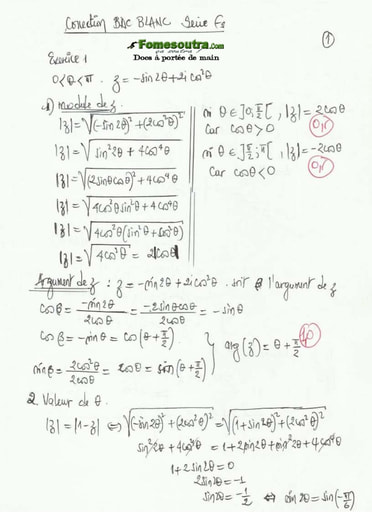 Correction BAC BLANC Série F2
①
Fomesoutra.com
ça soutra !
Docs à portée de main
Exercice 1
0<θ<π . z = -sin2θ + 2i cos²θ
1) module de z.
|z| = √((-sin2θ)² + (2cos²θ)²)
|z| = √(sin²2θ + 4cos⁴θ)
|z| = √((2sinθcosθ)² + 4cos⁴θ)
|z| = √(4cos²θsin²θ + 4cos⁴θ)
|z| = √(4cos²θ(sin²θ + cos²θ))
|z| = √(4cos²θ) = 2|cosθ|
si θ ∈ ]0; π/2[ , |z| = 2cosθ
Car cosθ > 0
si θ ∈ ]π/2; π[ , |z| = -2cosθ
Car cosθ < 0
Argument de z : z = -sin2θ + 2i cos²θ . soit β l'argument de z
cosβ = -sin2θ/2cosθ = -2sinθcosθ/2cosθ = -sinθ
cosβ = -sinθ = cos(θ + π/2)
sinβ = 2cos²θ/2cosθ = cosθ = sin(θ + π/2)
arg(z) = θ + π/2
2. Valeur de θ.
|z| = |1-z| ⇔ √((-sin2θ)² + (2cos²θ)²) = √((1+sin2θ)² + (2cos²θ)²)
sin²2θ + 4cos⁴θ = 1 + 2sin2θ + sin²2θ + 4cos⁴θ
1 + 2sin2θ = 0
2sin2θ = -1
sin2θ = -1/2 ⇔ sin2θ = sin(-π/6)